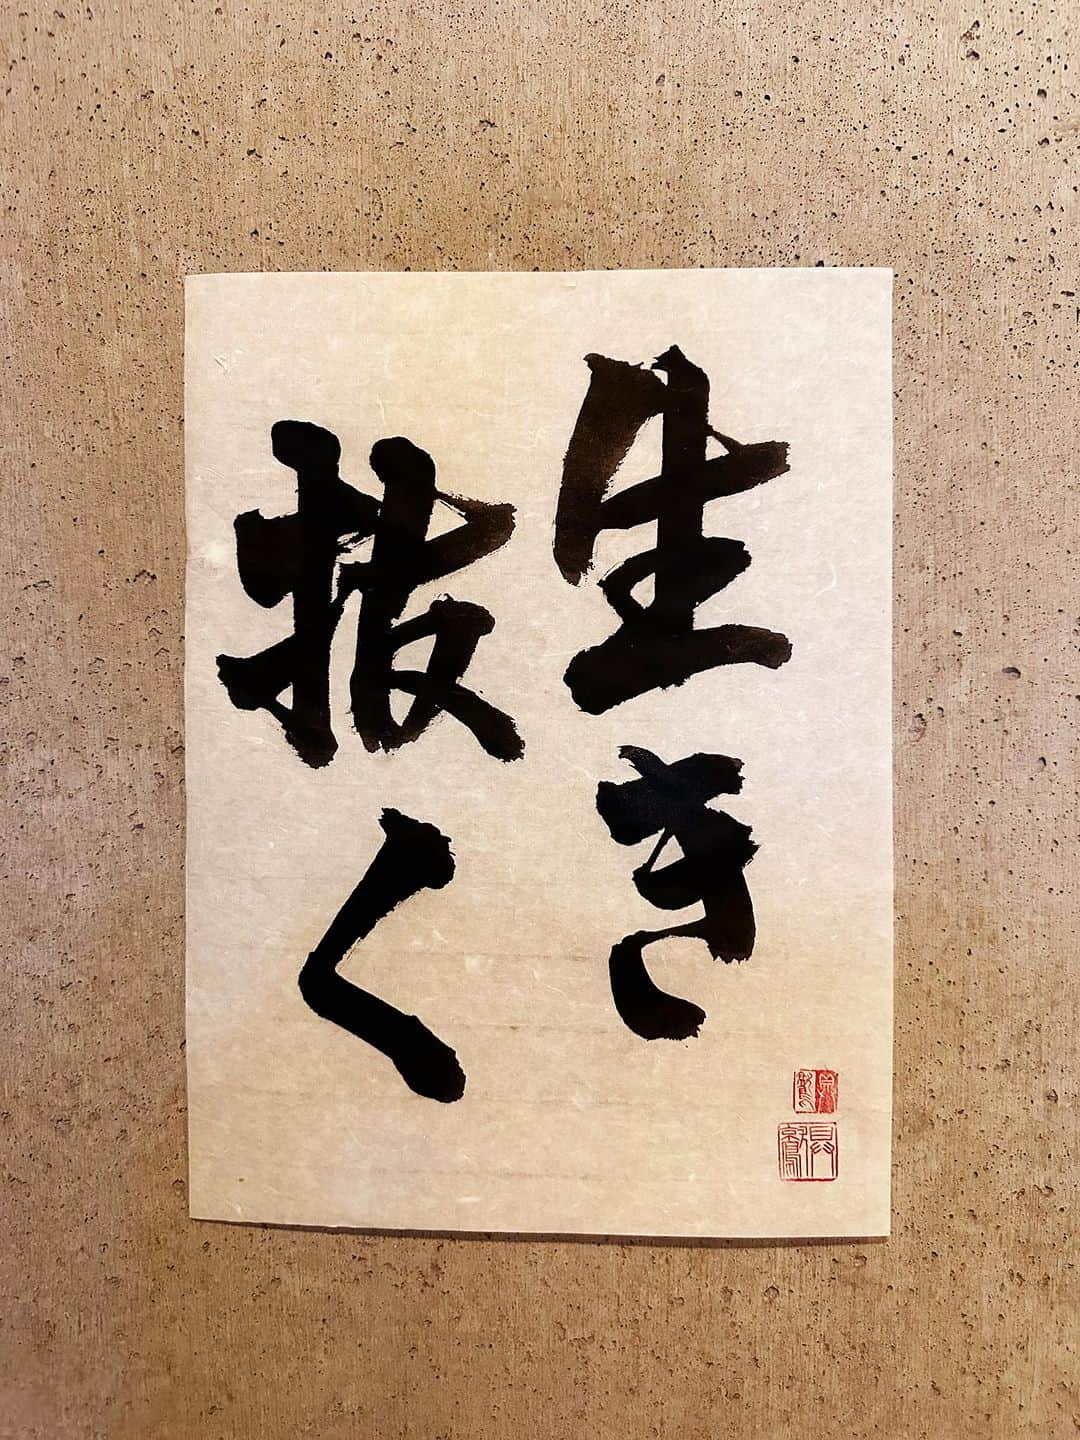 生き
抜く